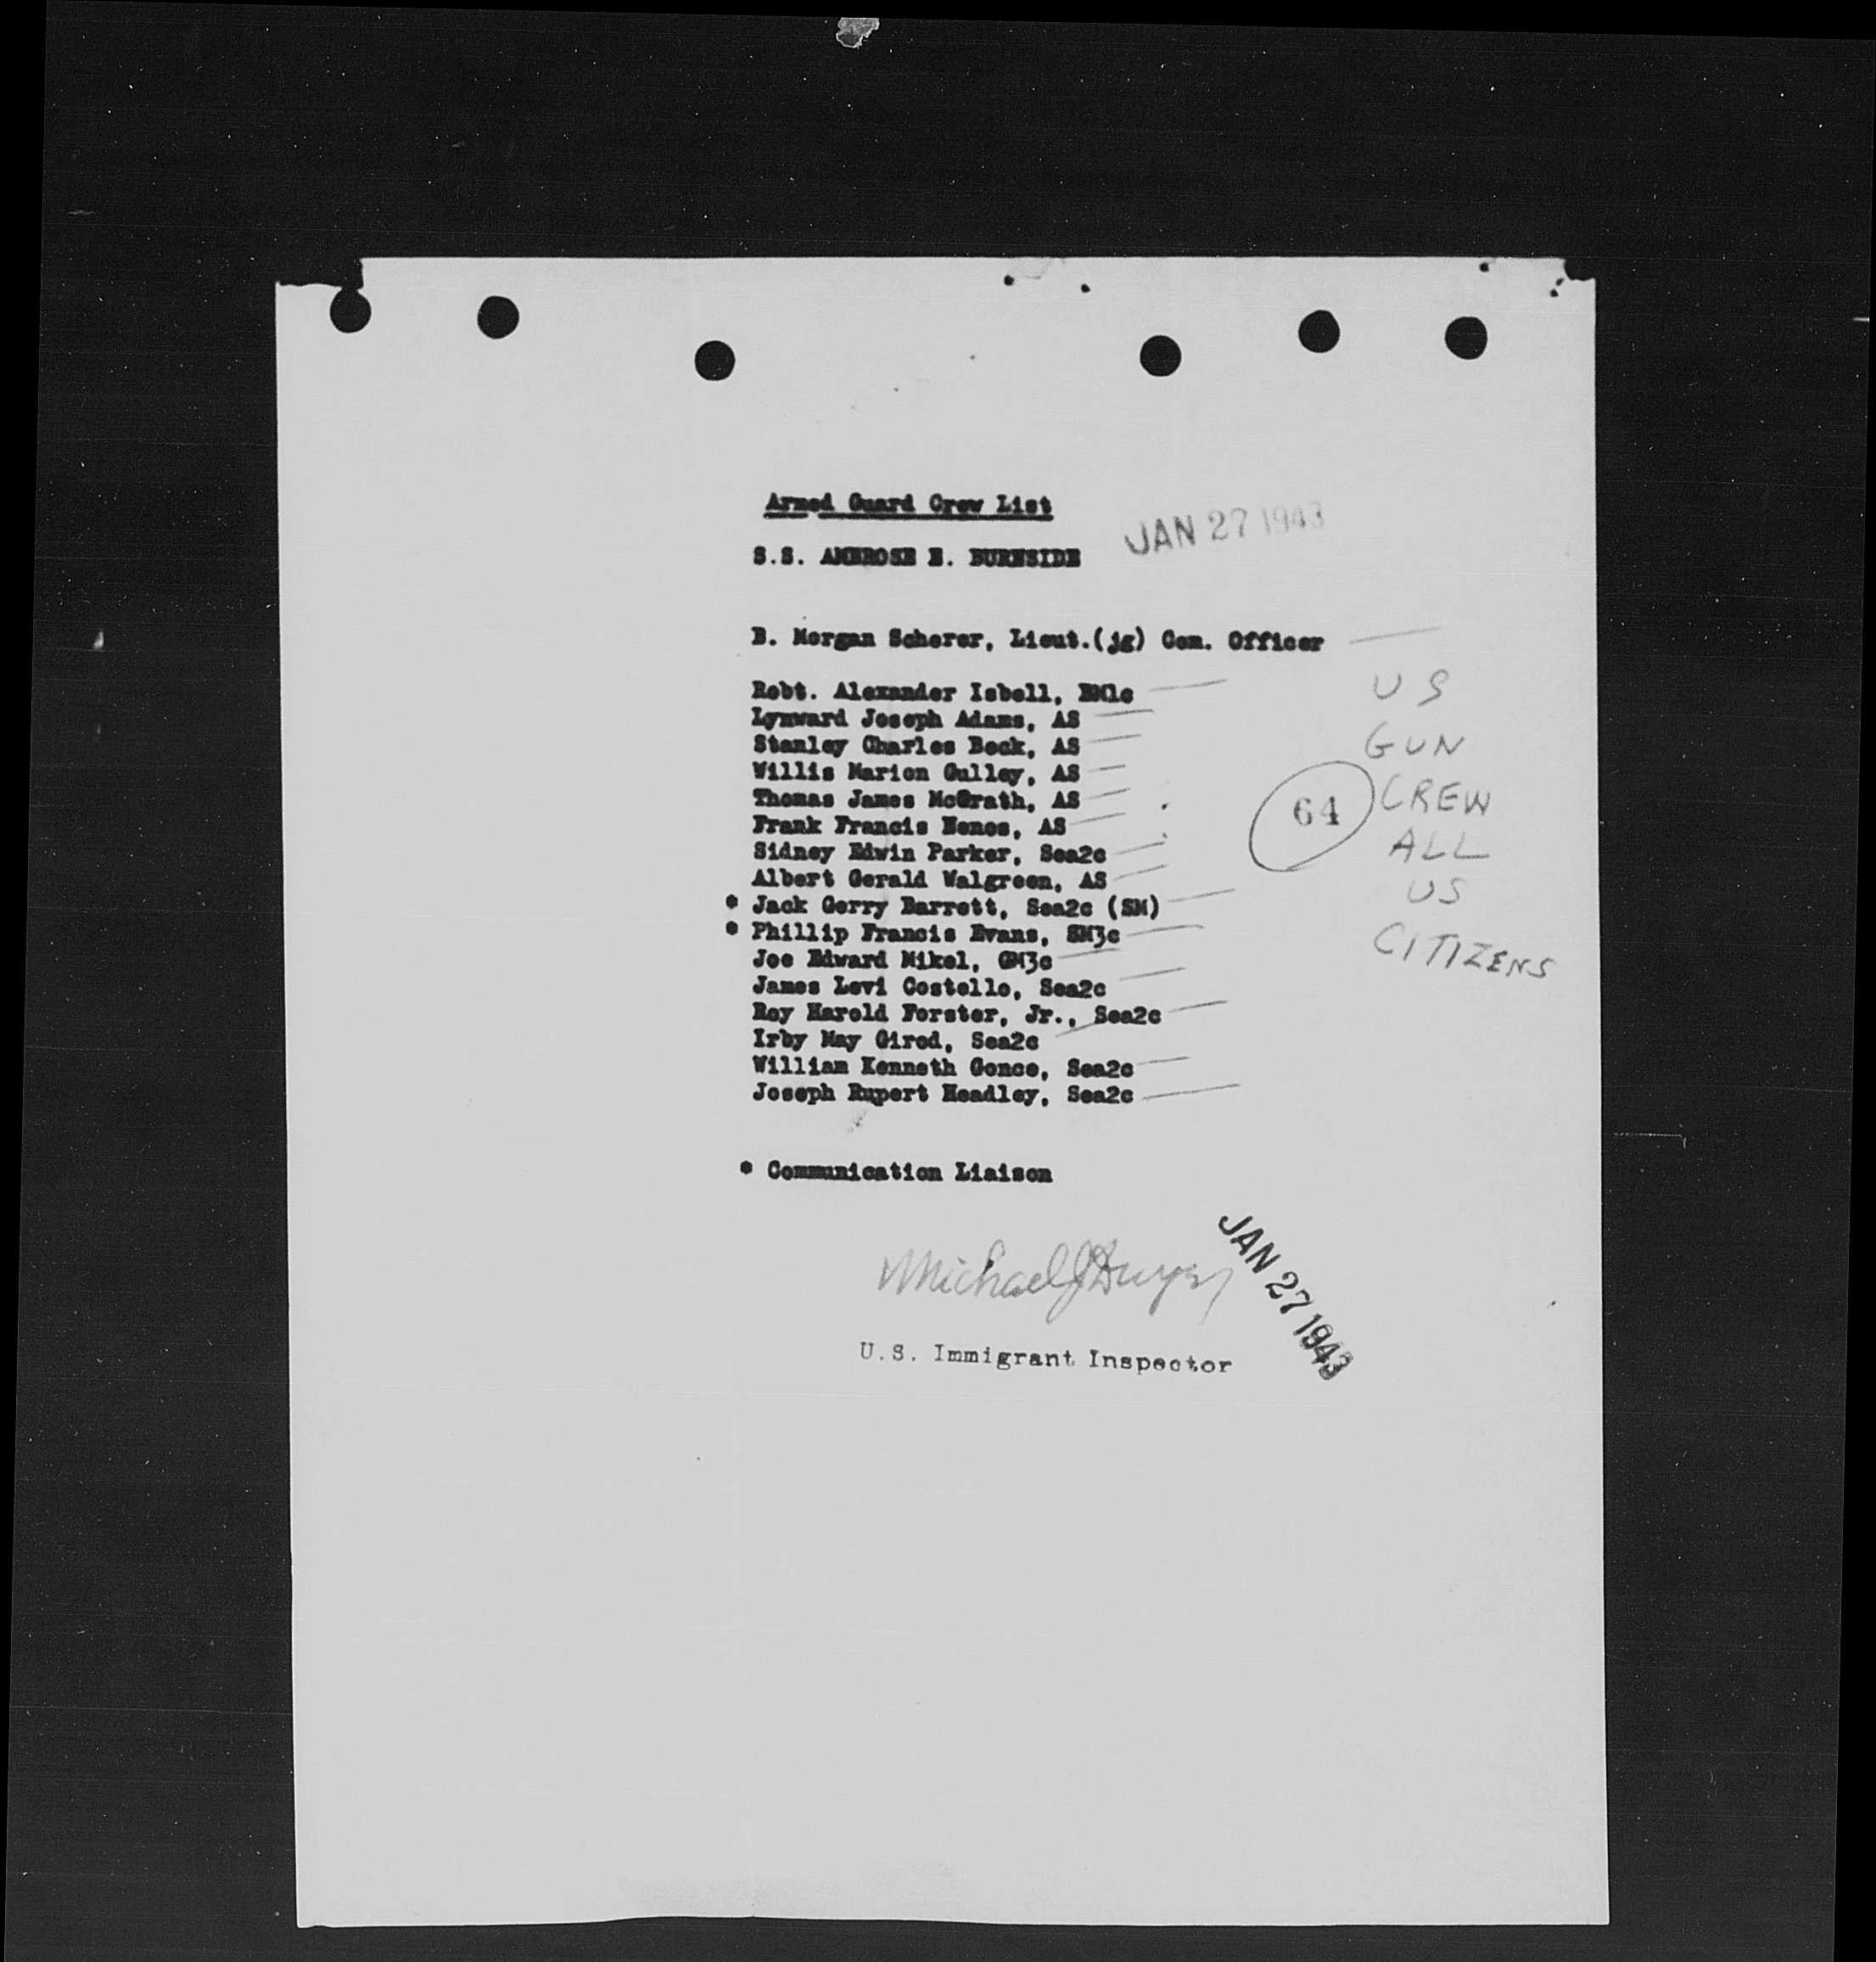 Armed Guard Crew List
JAN 27 1943
S.S. AMBROSE E. BURNSIDE
B. Morgan Scherer, Lieut.(jg) Com. Officer
Robt. Alexander Isbell, BM1c
Lynward Joseph Adams, AS
Stanley Charles Beck, AS
Willis Marion Gulley, AS
Thomas James McGrath, AS
Frank Francis Henos, AS
Sidney Edwin Parker, Sea2c
Albert Gerald Walgreen, AS
* Jack Gerry Barrett, Sea2c (SM)
* Phillip Francis Evans, SM3c
Joe Edward Mikel, GM3c
James Levi Costello, Sea2c
Roy Harold Forster, Jr., Sea2c
Irby May Girod, Sea2c
William Kenneth Gonce, Sea2c
Joseph Rupert Headley, Sea2c
US
GUN
CREW
64
ALL
US
CITIZENS
* Communication Liaison
Michael J Dwyer
JAN 27 1943
U.S. Immigrant Inspector